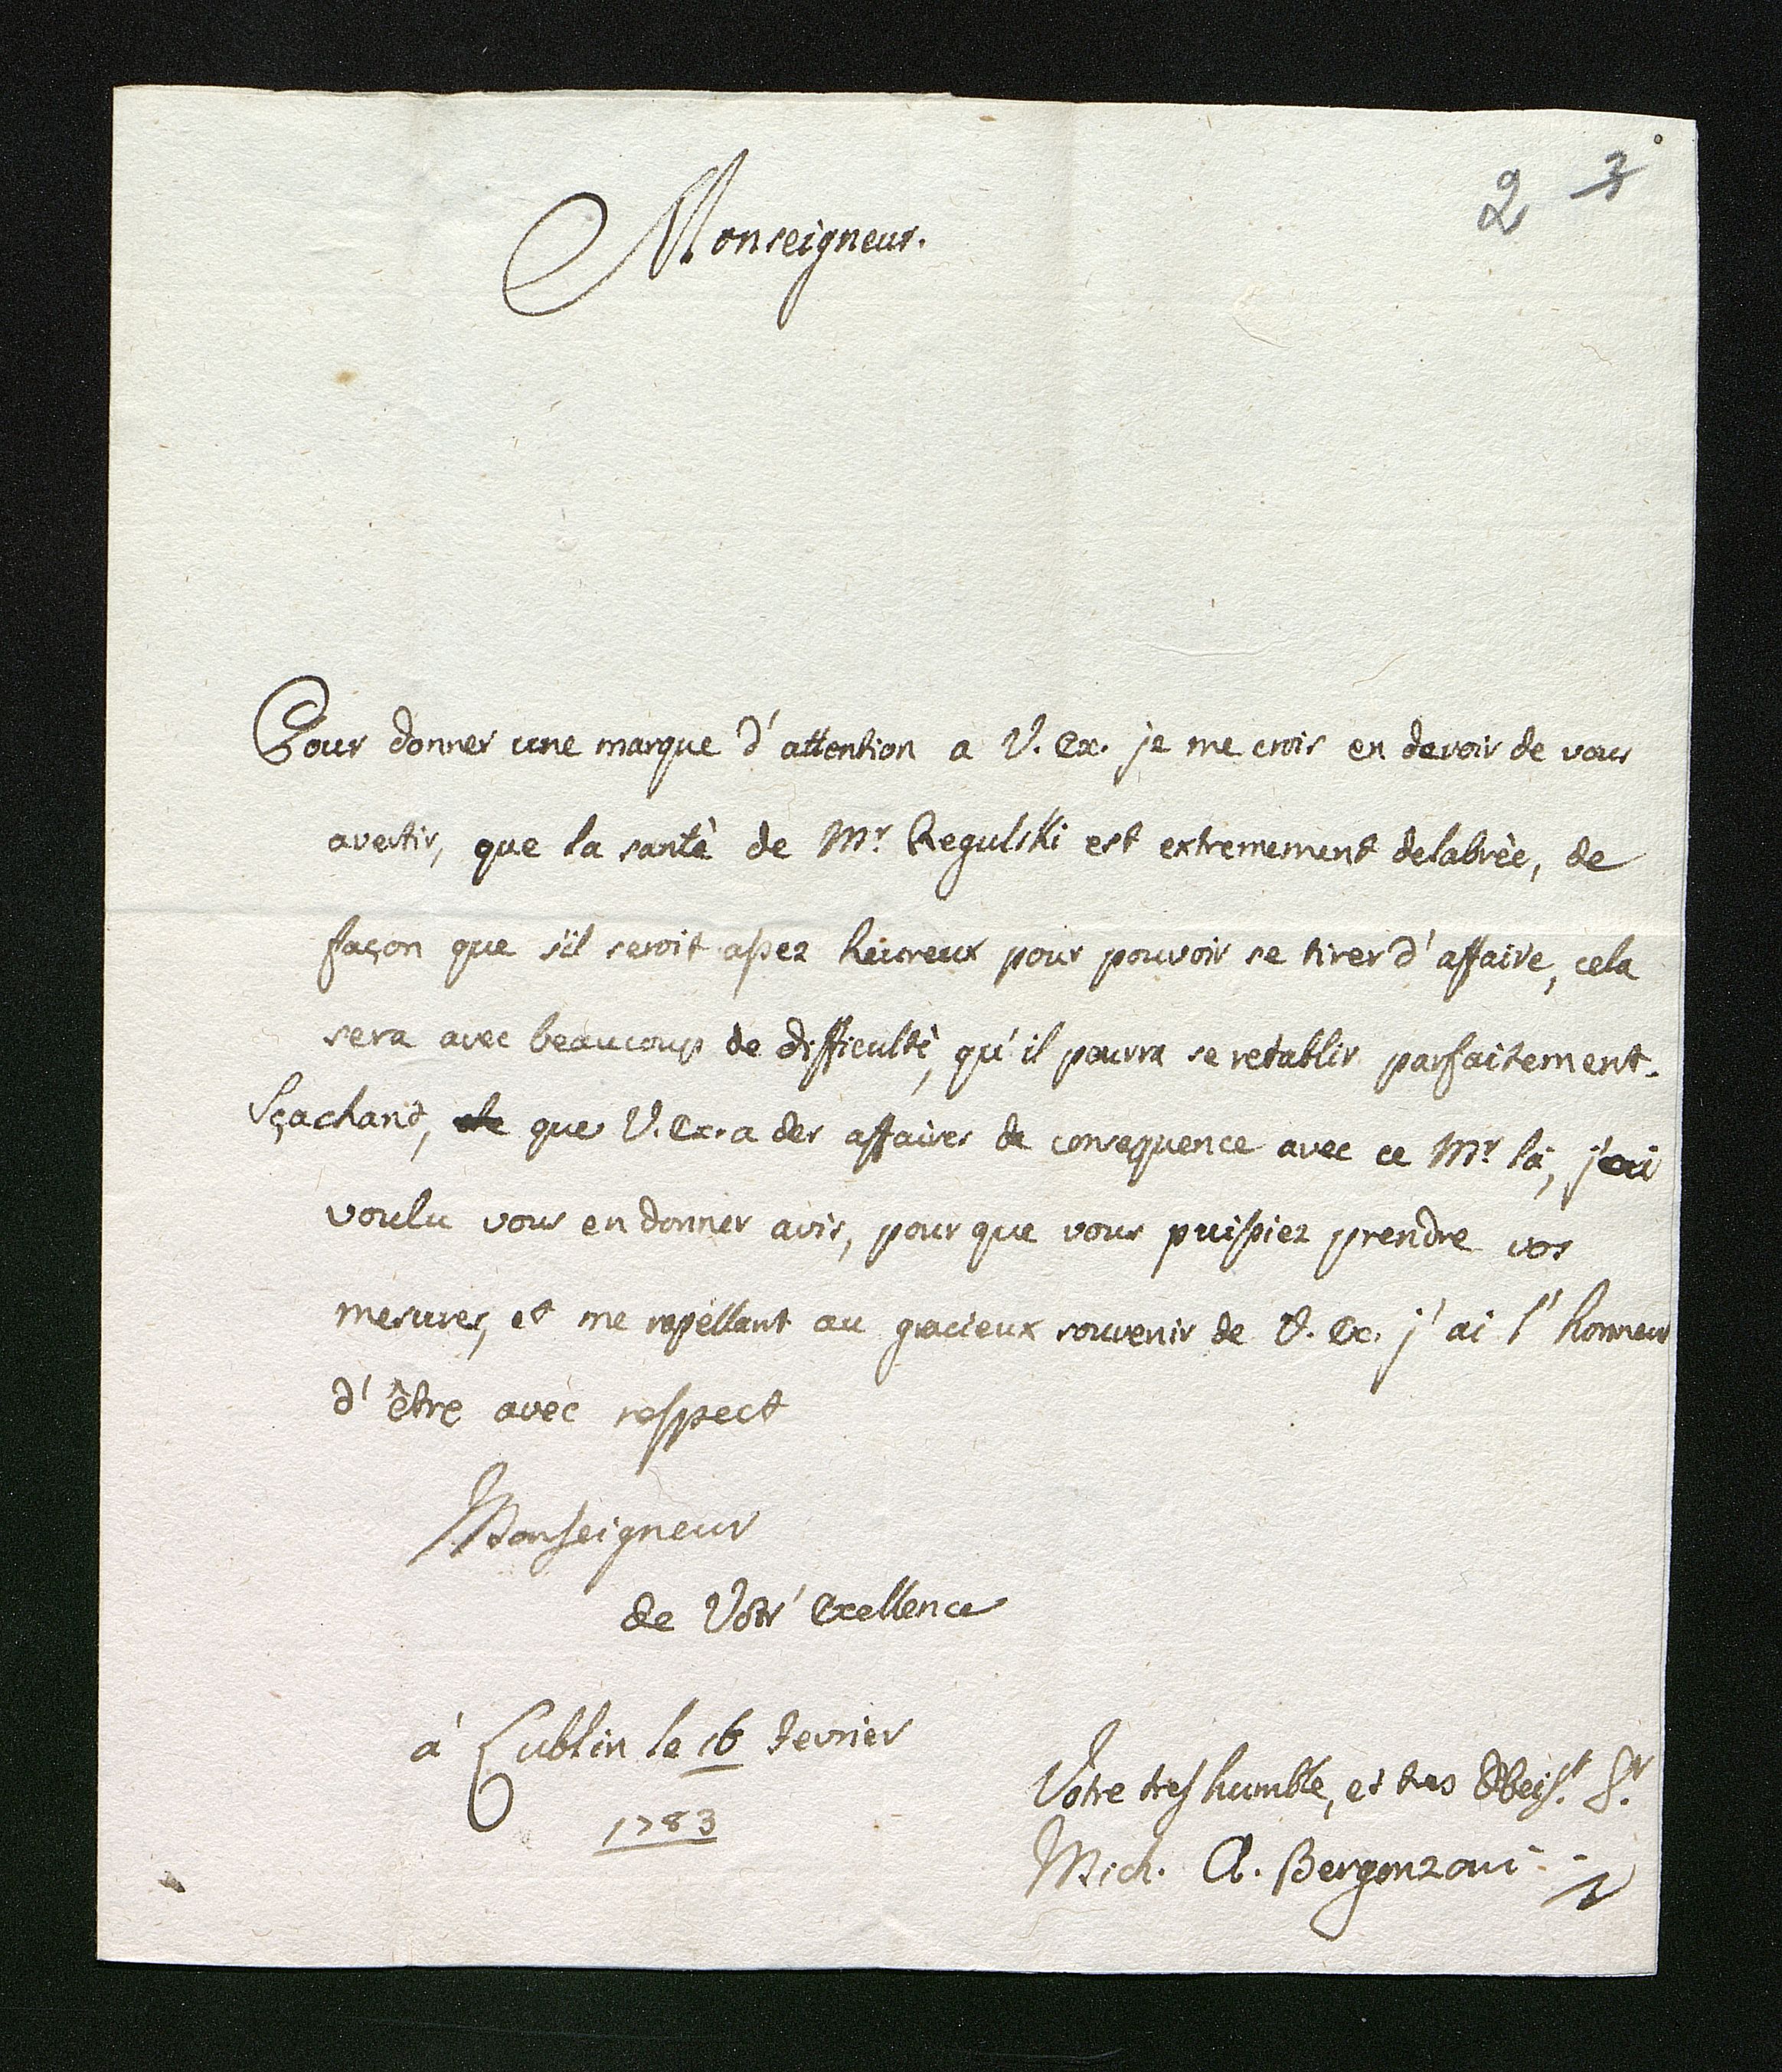 2 3
Monseigneur.
Pour donner une marque d'attention a V. Ex. je me crois en devoir de vous
avertir, que la santè de Mr. Regulski est extremement delabrèe, de
façon que s'il seroit assez heureux pour pouvoir se tirer d'affaire, cela
sera avec beaucoup de difficultè, qu'il pourra se retablir parfaitement.
Sçachand, que V. Ex. a des affaires de consequence avec ce Mr. là, j'ai
voulu vous en donner avis, pour que vous puissiez prendre vos
mesures, et me rapellant au gracieux souvenir de V. Ex. j'ai l'honneur
d'être avec respect
Monseigneur
de Votr' Exellence
à Lublin le 16 Fevrier
1783
Votre tres humble, et tres Obeist. Sr.
Mich. A. Bergonzoni